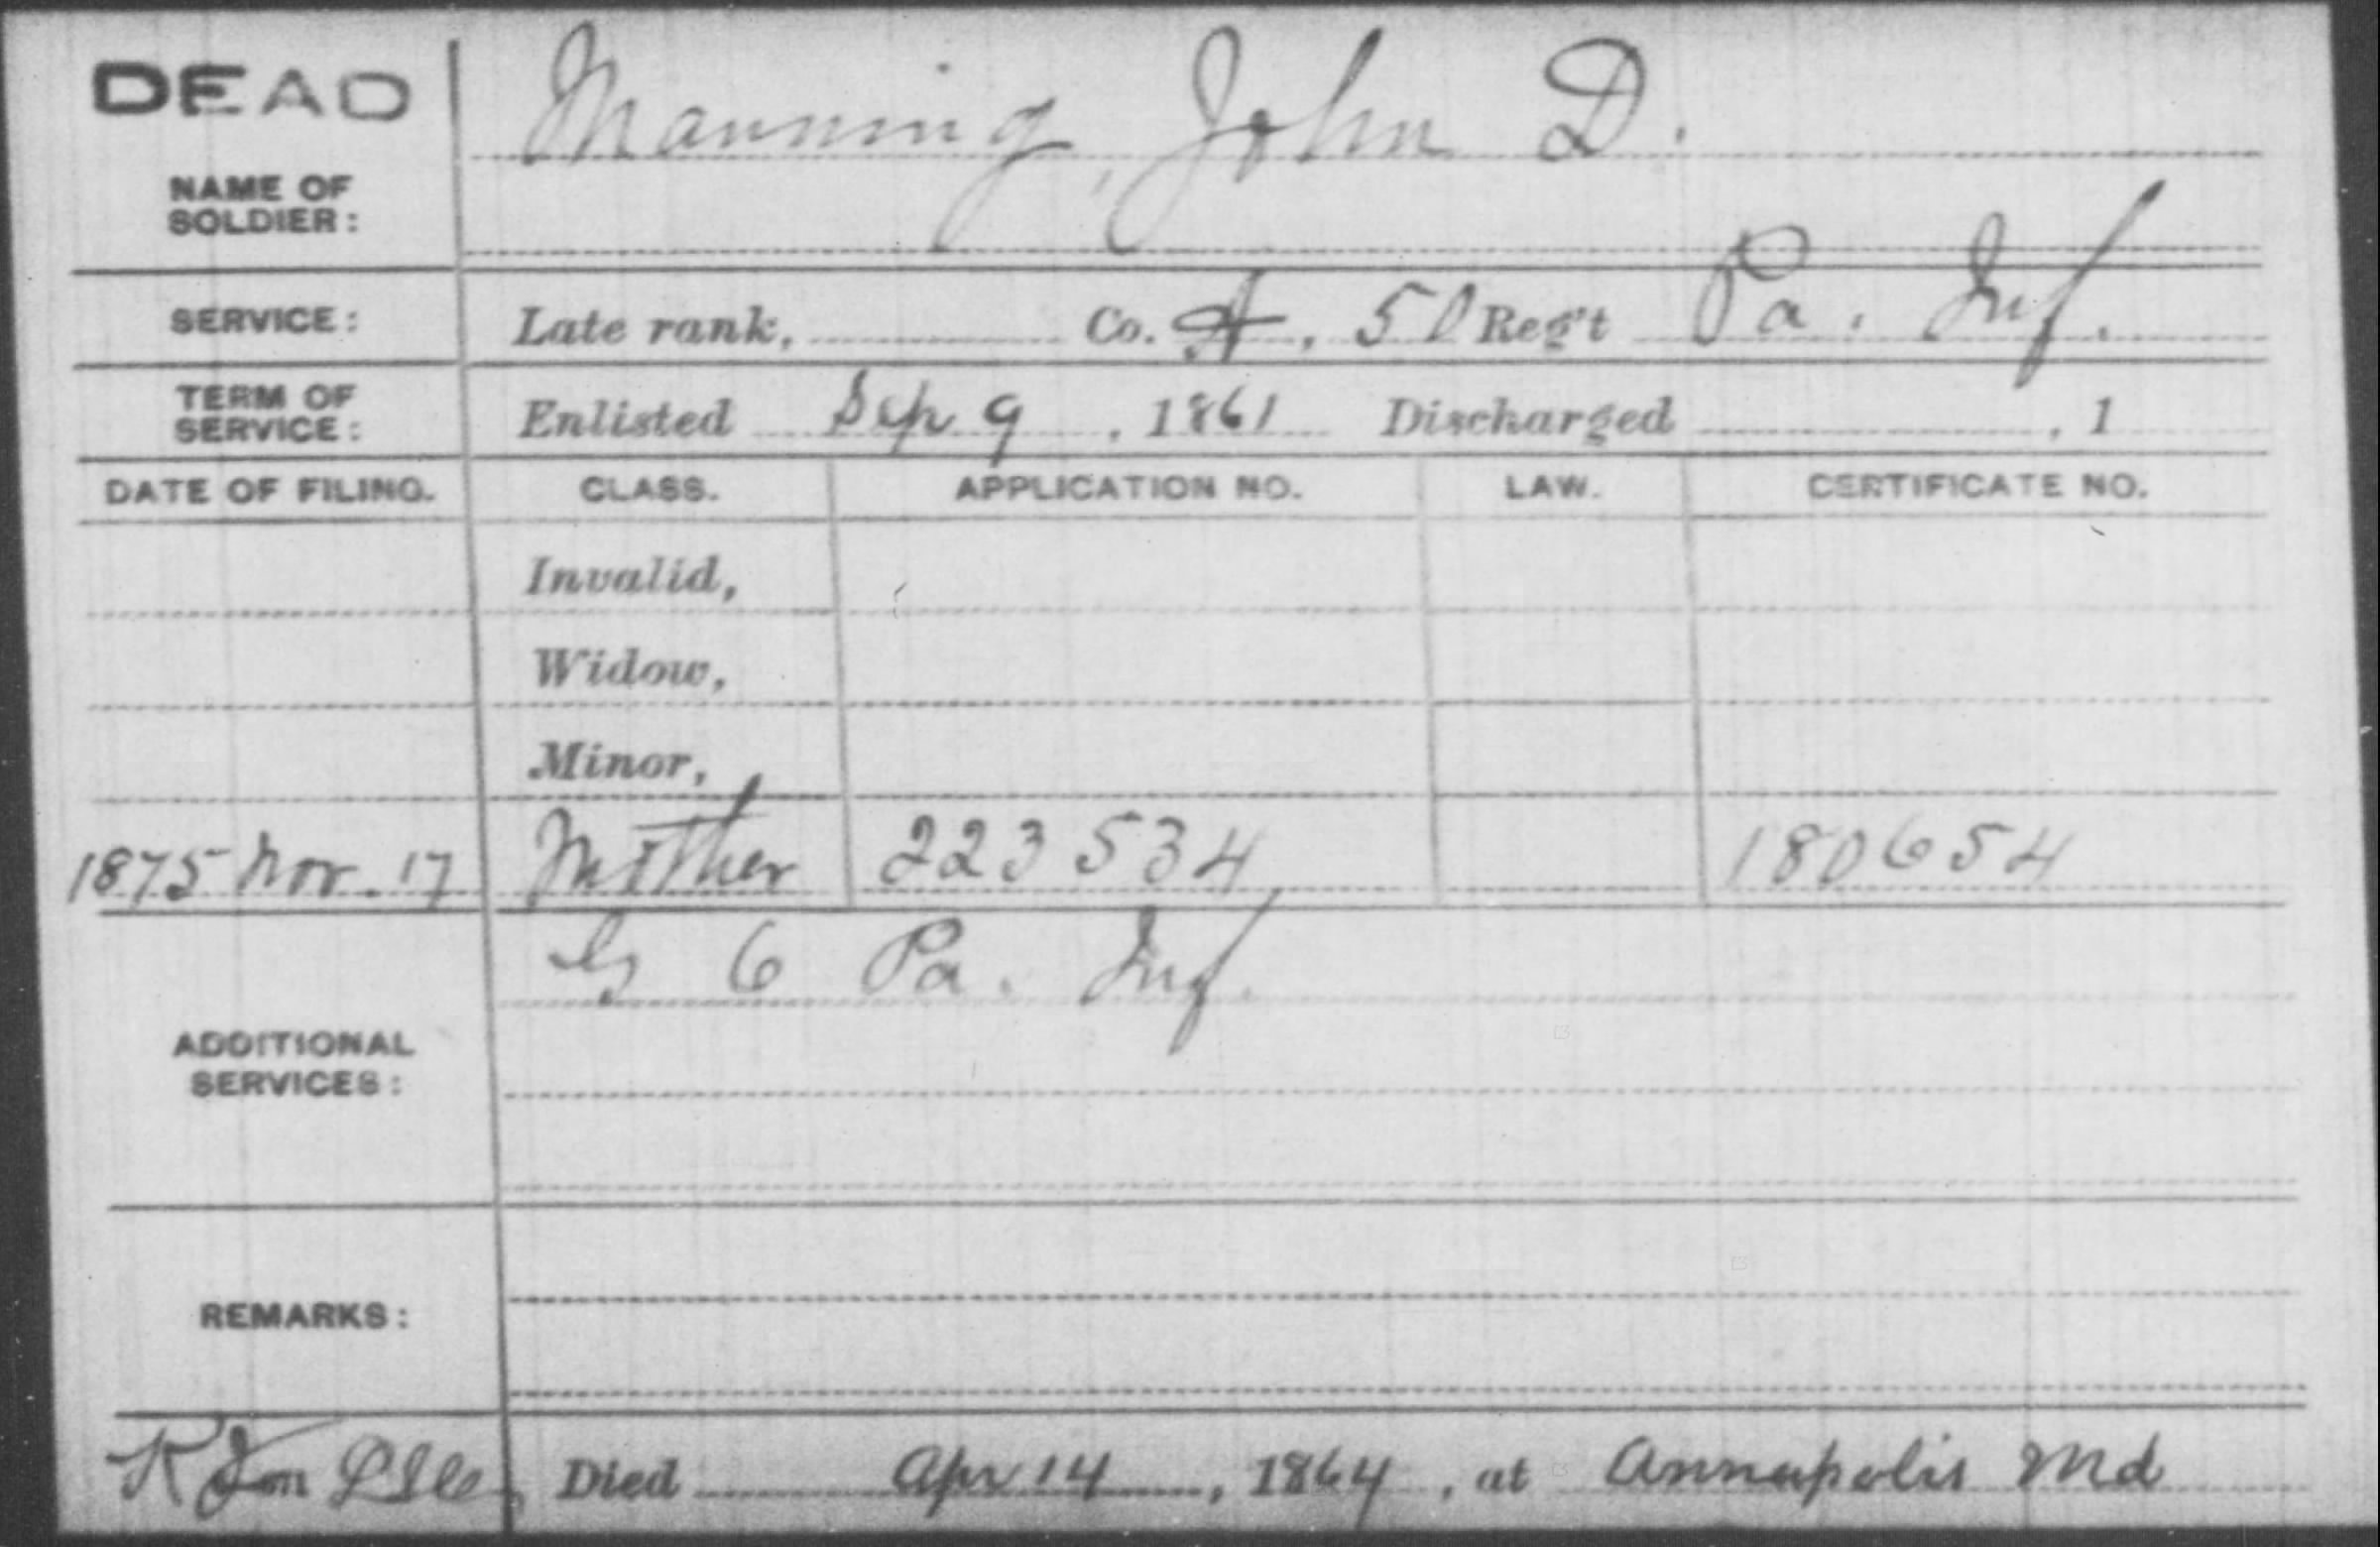 DEAD
Manning, John D.
NAME OF
SOLDIER:
SERVICE: Late rank, Co. A, 50 Reg't Pa. Inf.
TERM OF
SERVICE: Enlisted Sep 9, 1861 Discharged , 1
DATE OF FILING. CLASS. APPLICATION NO. LAW. CERTIFICATE NO.
Invalid,
Widow,
Minor,
1875 Nov. 17 Mother 223534 180654
G 6 Pa. Inf.
ADDITIONAL
SERVICES:
REMARKS:
Died Apr 14, 1864, at Annapolis Md